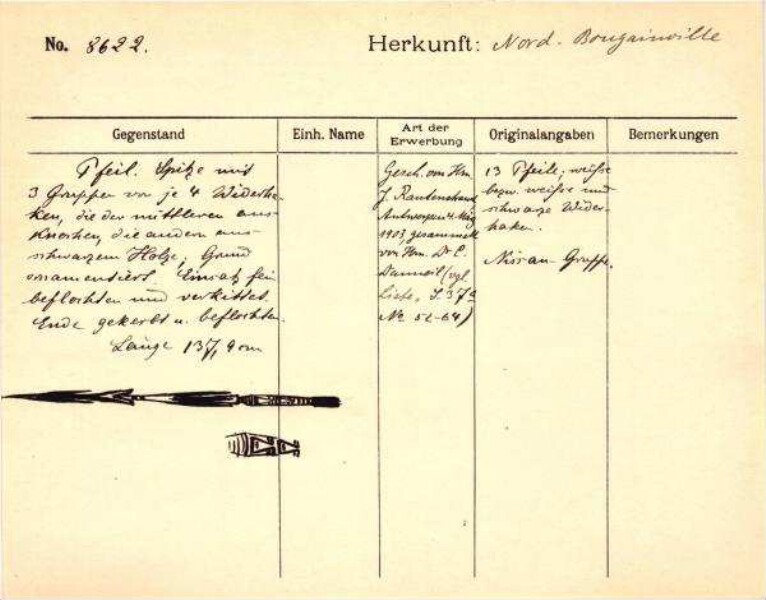 No. 8622.
Herkunft: Nord. Bougainville
Gegenstand
Einh. Name
Art der Erwerbung
Originalangaben
Bemerkungen
Pfeil. Spitze mit
3 Gruppen von je 4 Widerha-
ken, die der mittleren aus
Knochen, die andern aus
schwarzem Holze; Grund
ornamentiert. Einsatz fein
beflochten und verkittet.
Ende gekerbt u. beflochten.
Länge 137,9 cm
Gesch. von Hrn.
J. Rautenstrauch
Antwerpen 4. Mai
1903, gesammelt
von Hrn. Dr. C.
Danneil (vgl.
Liste, S. 37
No 52-64)
13 Pfeile, weiße
bezw. weiße und
schwarze Wider-
haken.
Nissan-Gruppe.